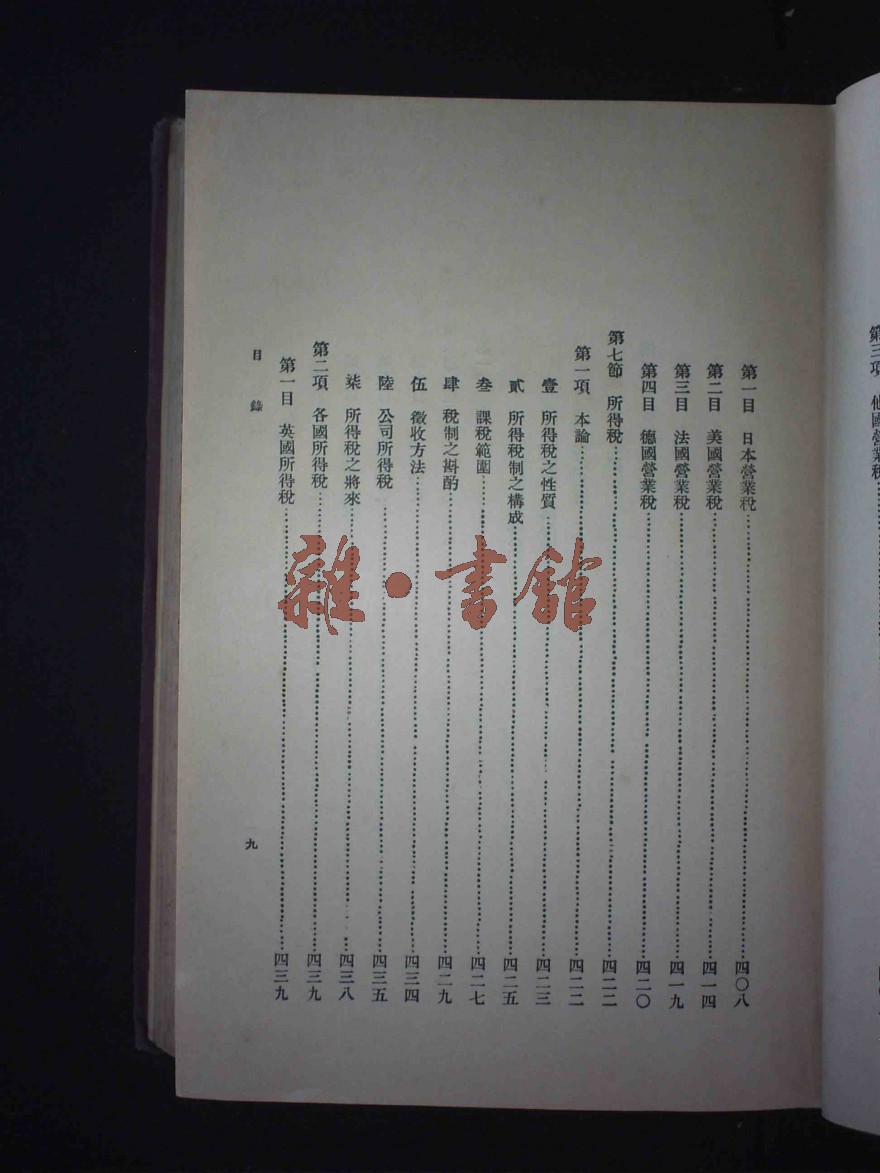 第三項　他國營業稅
第一目　日本營業稅……四〇八
第二目　美國營業稅……四一四
第三目　法國營業稅……四一九
第四目　德國營業稅……四二〇
第七節　所得稅……四二二
第一項　本論……四二二
壹　所得稅之性質……四二三
貳　所得稅制之構成……四二五
叁　課稅範圍……四二七
肆　稅制之斟酌……四二九
伍　徵收方法……四三四
陸　公司所得稅……四三五
柒　所得稅之將來……四三八
第二項　各國所得稅……四三九
第一目　英國所得稅……四三九
目錄
九
雜·書館